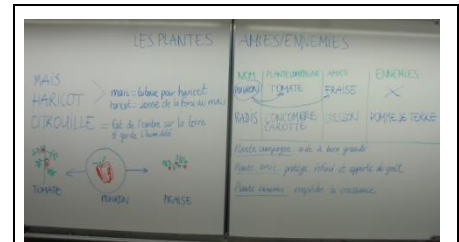 LES PLANTES
MAÏS
HARICOT
CITROUILLE
maïs = tuteur pour haricot
haricot = donne de la force au maïs
= fait de l'ombre sur la terre
et garde l'humidité
TOMATE
POIVRON
FRAISE
AMIES/ENNEMIES
NOM
PLANTE COMPAGNE
AMIES
ENNEMIES
POIVRON
TOMATE
FRAISE
X
RADIS
CONCOMBRE
CAROTTE
CRESSON
POMME DE TERRE
Plante compagne: aide à bien grandir
Plante amie: protège, et apporte du goût.
Plante ennemie: empêche la croissance.